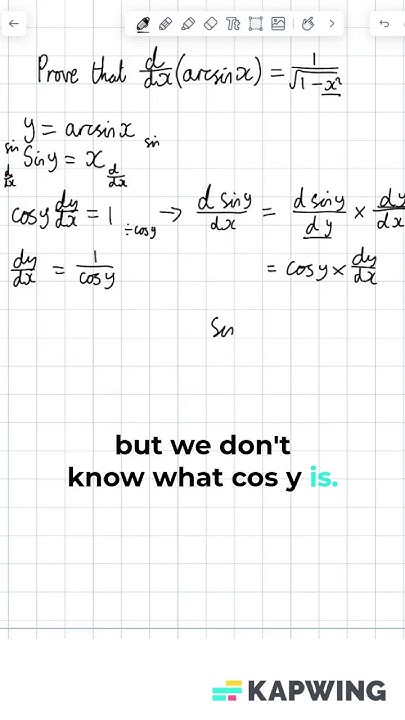 Tt
Prove that d/dx (arcsinx) = 1/√(1-x²)
y = arcsinx
sin Siny = x sin
d/dx d/dx
cosy dy/dx = 1 ÷cosy → d siny/dx = d siny/dy × dy/dx
dy/dx = 1/cosy = cosy × dy/dx
Sin
but we don't
know what cos y is.
KAPWING